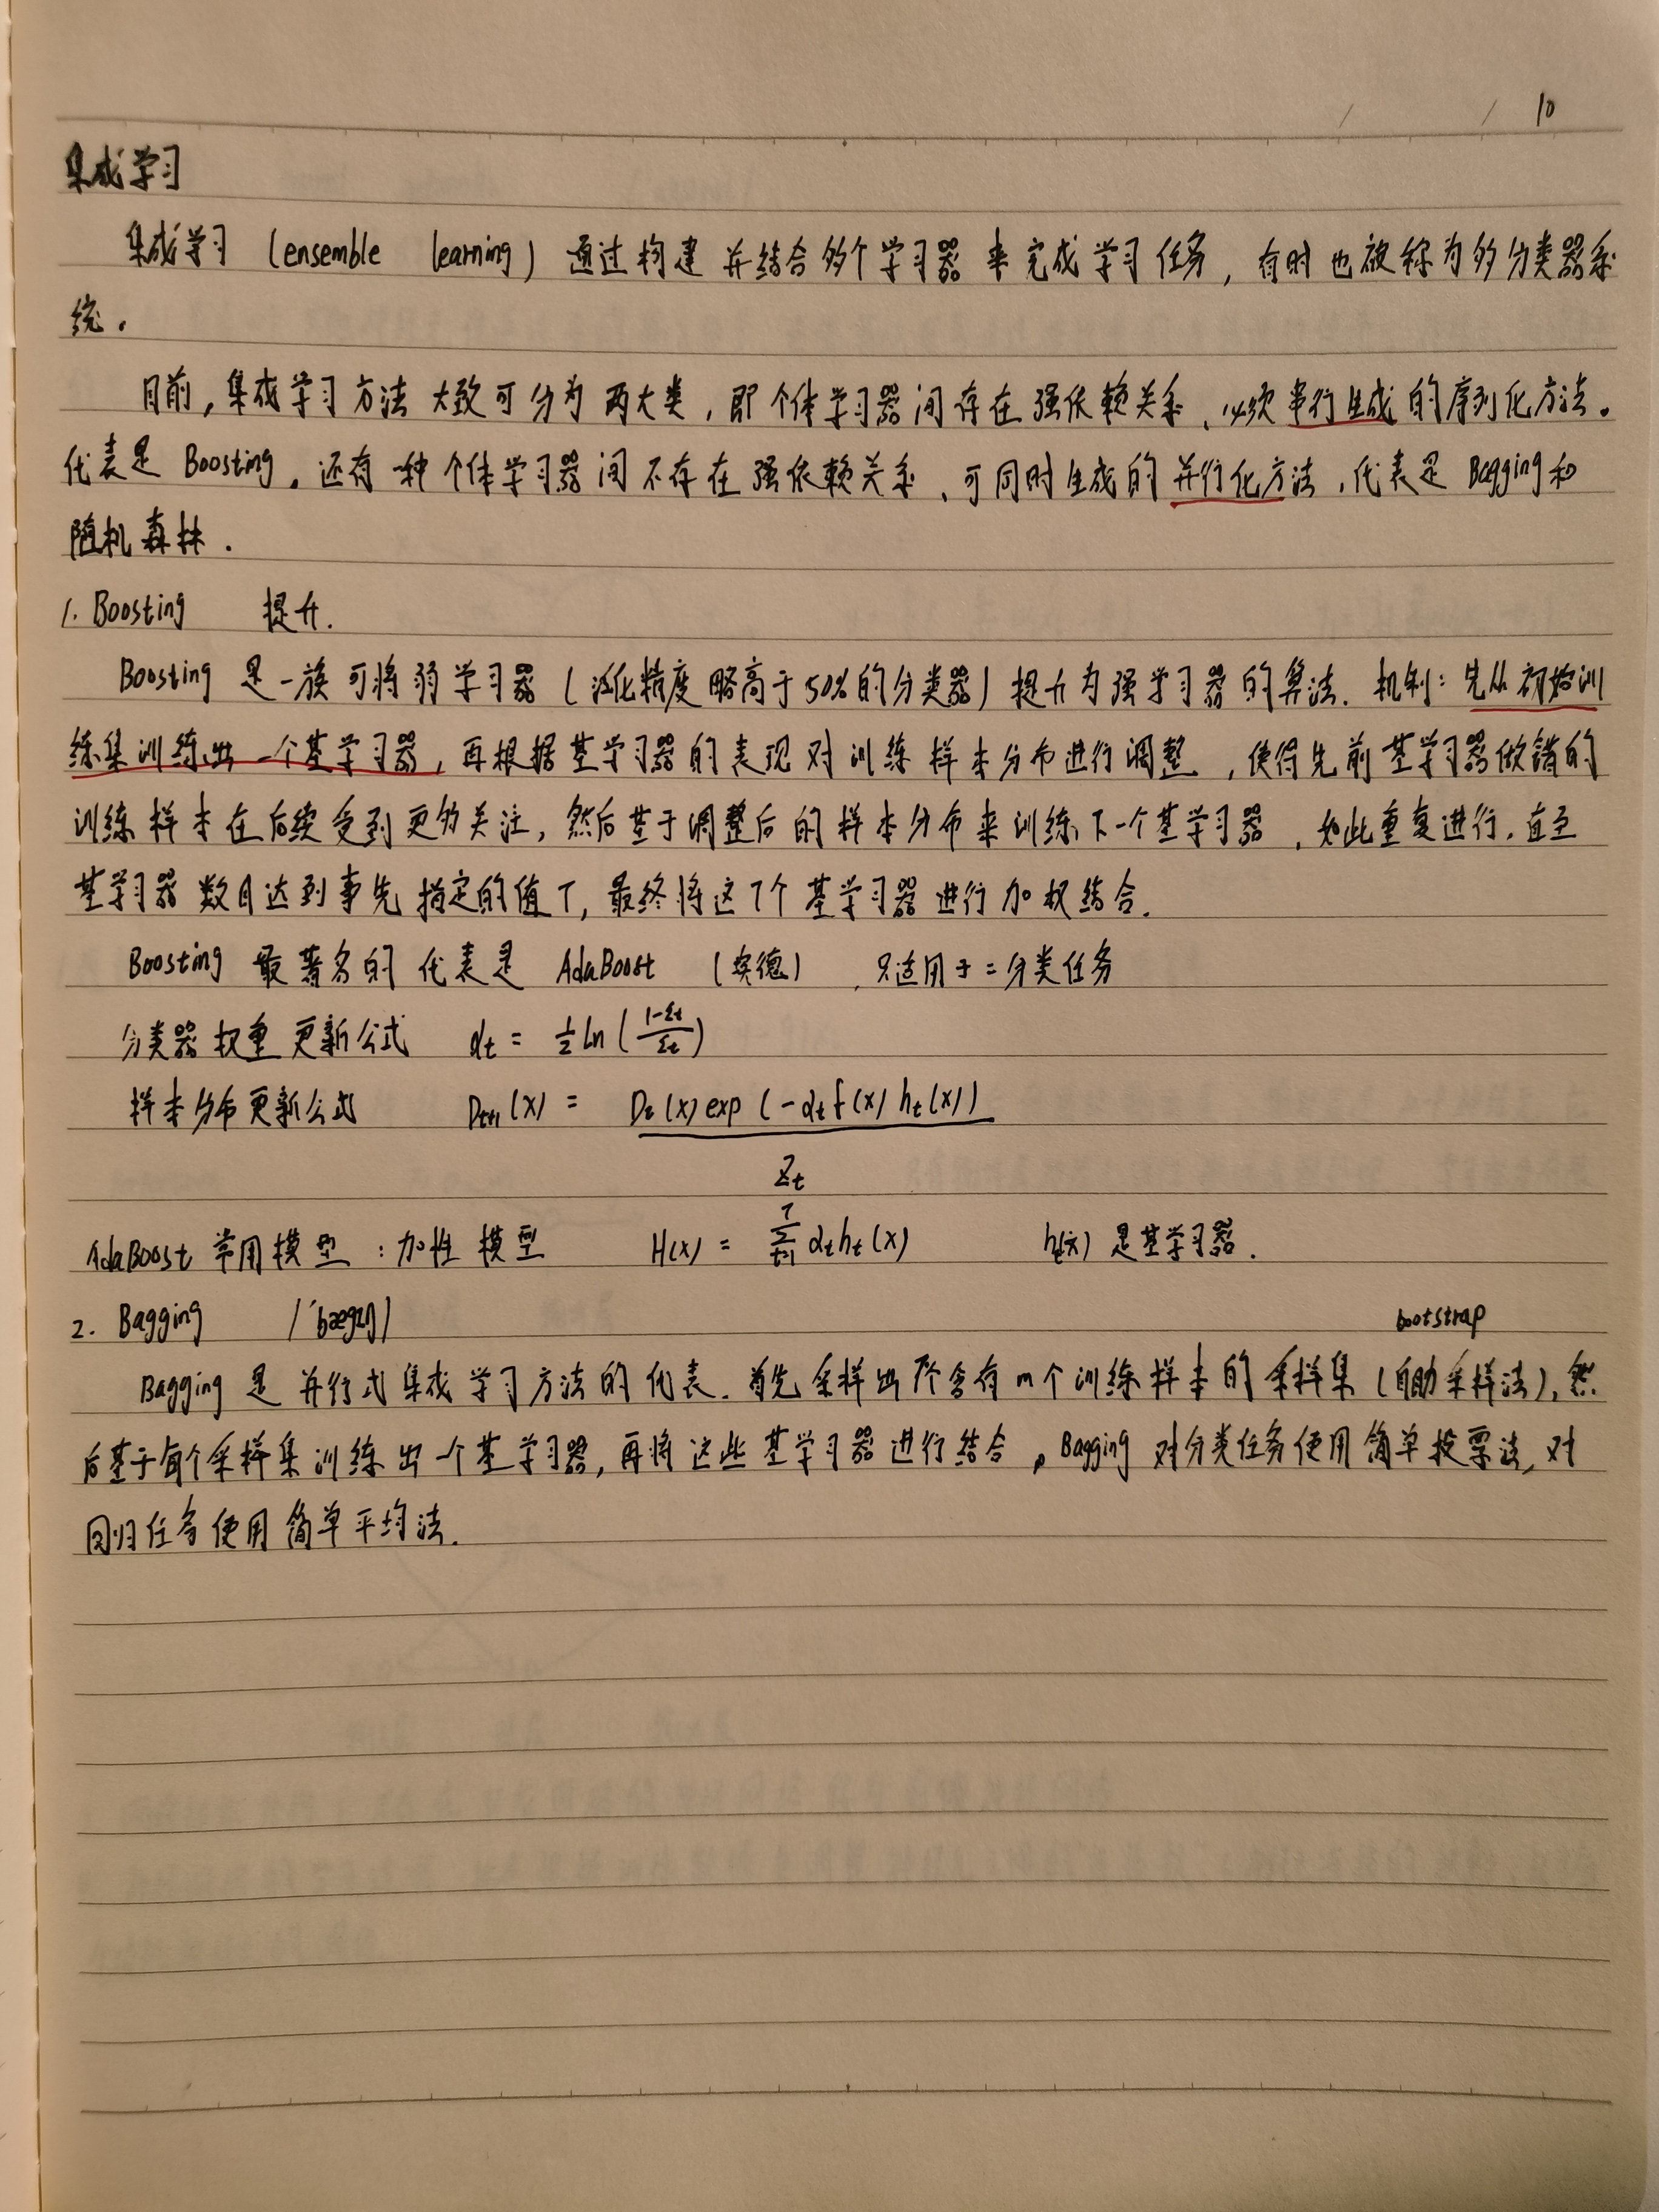 / / 10
集成学习
集成学习 (ensemble learning) 通过构建并结合多个学习器来完成学习任务, 有时也被称为多分类器系
统.
目前, 集成学习方法大致可分为两大类, 即个体学习器间存在强依赖关系、必须串行生成的序列化方法.
代表是 Boosting. 还有一种个体学习器间不存在强依赖关系、可同时生成的并行化方法, 代表是 Bagging 和
随机森林.
1. Boosting 提升.
Boosting 是一族可将弱学习器 (泛化精度略高于50%的分类器) 提升为强学习器的算法. 机制: 先从初始训
练集训练出一个基学习器, 再根据基学习器的表现对训练样本分布进行调整, 使得先前基学习器做错的
训练样本在后续受到更多关注, 然后基于调整后的样本分布来训练下一个基学习器, 如此重复进行, 直至
基学习器数目达到事先指定的值T, 最终将这T个基学习器进行加权结合.
Boosting 最著名的代表是 AdaBoost (埃德), 只适用于二分类任务
分类器权重更新公式 αt = 1/2 ln ( (1-εt)/εt )
样本分布更新公式 Dt+1(x) = Dt(x) exp (-αt f(x) ht(x)) / Zt
AdaBoost 常用模型: 加性模型 H(x) = Σ_{t=1}^{T} αt ht(x) ht(x) 是基学习器.
2. Bagging /ˈbægɪŋ/
bootstrap
Bagging 是并行式集成学习方法的代表. 首先采样出T个含有m个训练样本的采样集 (自助采样法), 然
后基于每个采样集训练出一个基学习器, 再将这些基学习器进行结合. Bagging 对分类任务使用简单投票法, 对
回归任务使用简单平均法.